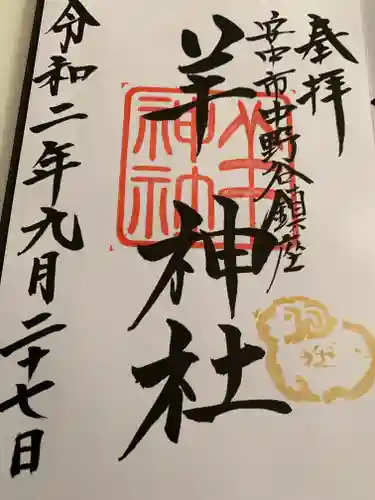 奉拝
安中市中野谷鎮座
羊神社
令和二年九月二十七日